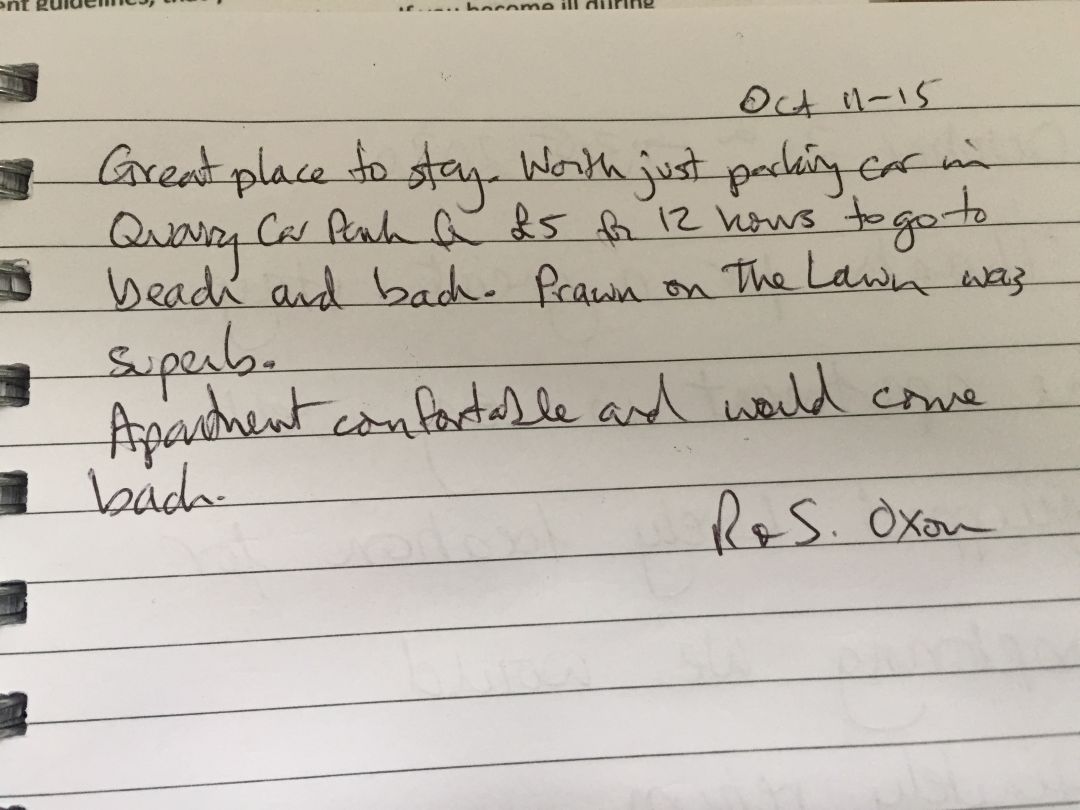 ent guidelines, that
If you become ill during
Oct 11-15
Great place to stay. Worth just parking car in
Quarry Car Park for £5 for 12 hours to go to
beach and back. Prawn on The Lawn was
superb.
Apartment comfortable and would come
back.
R & S. Oxon